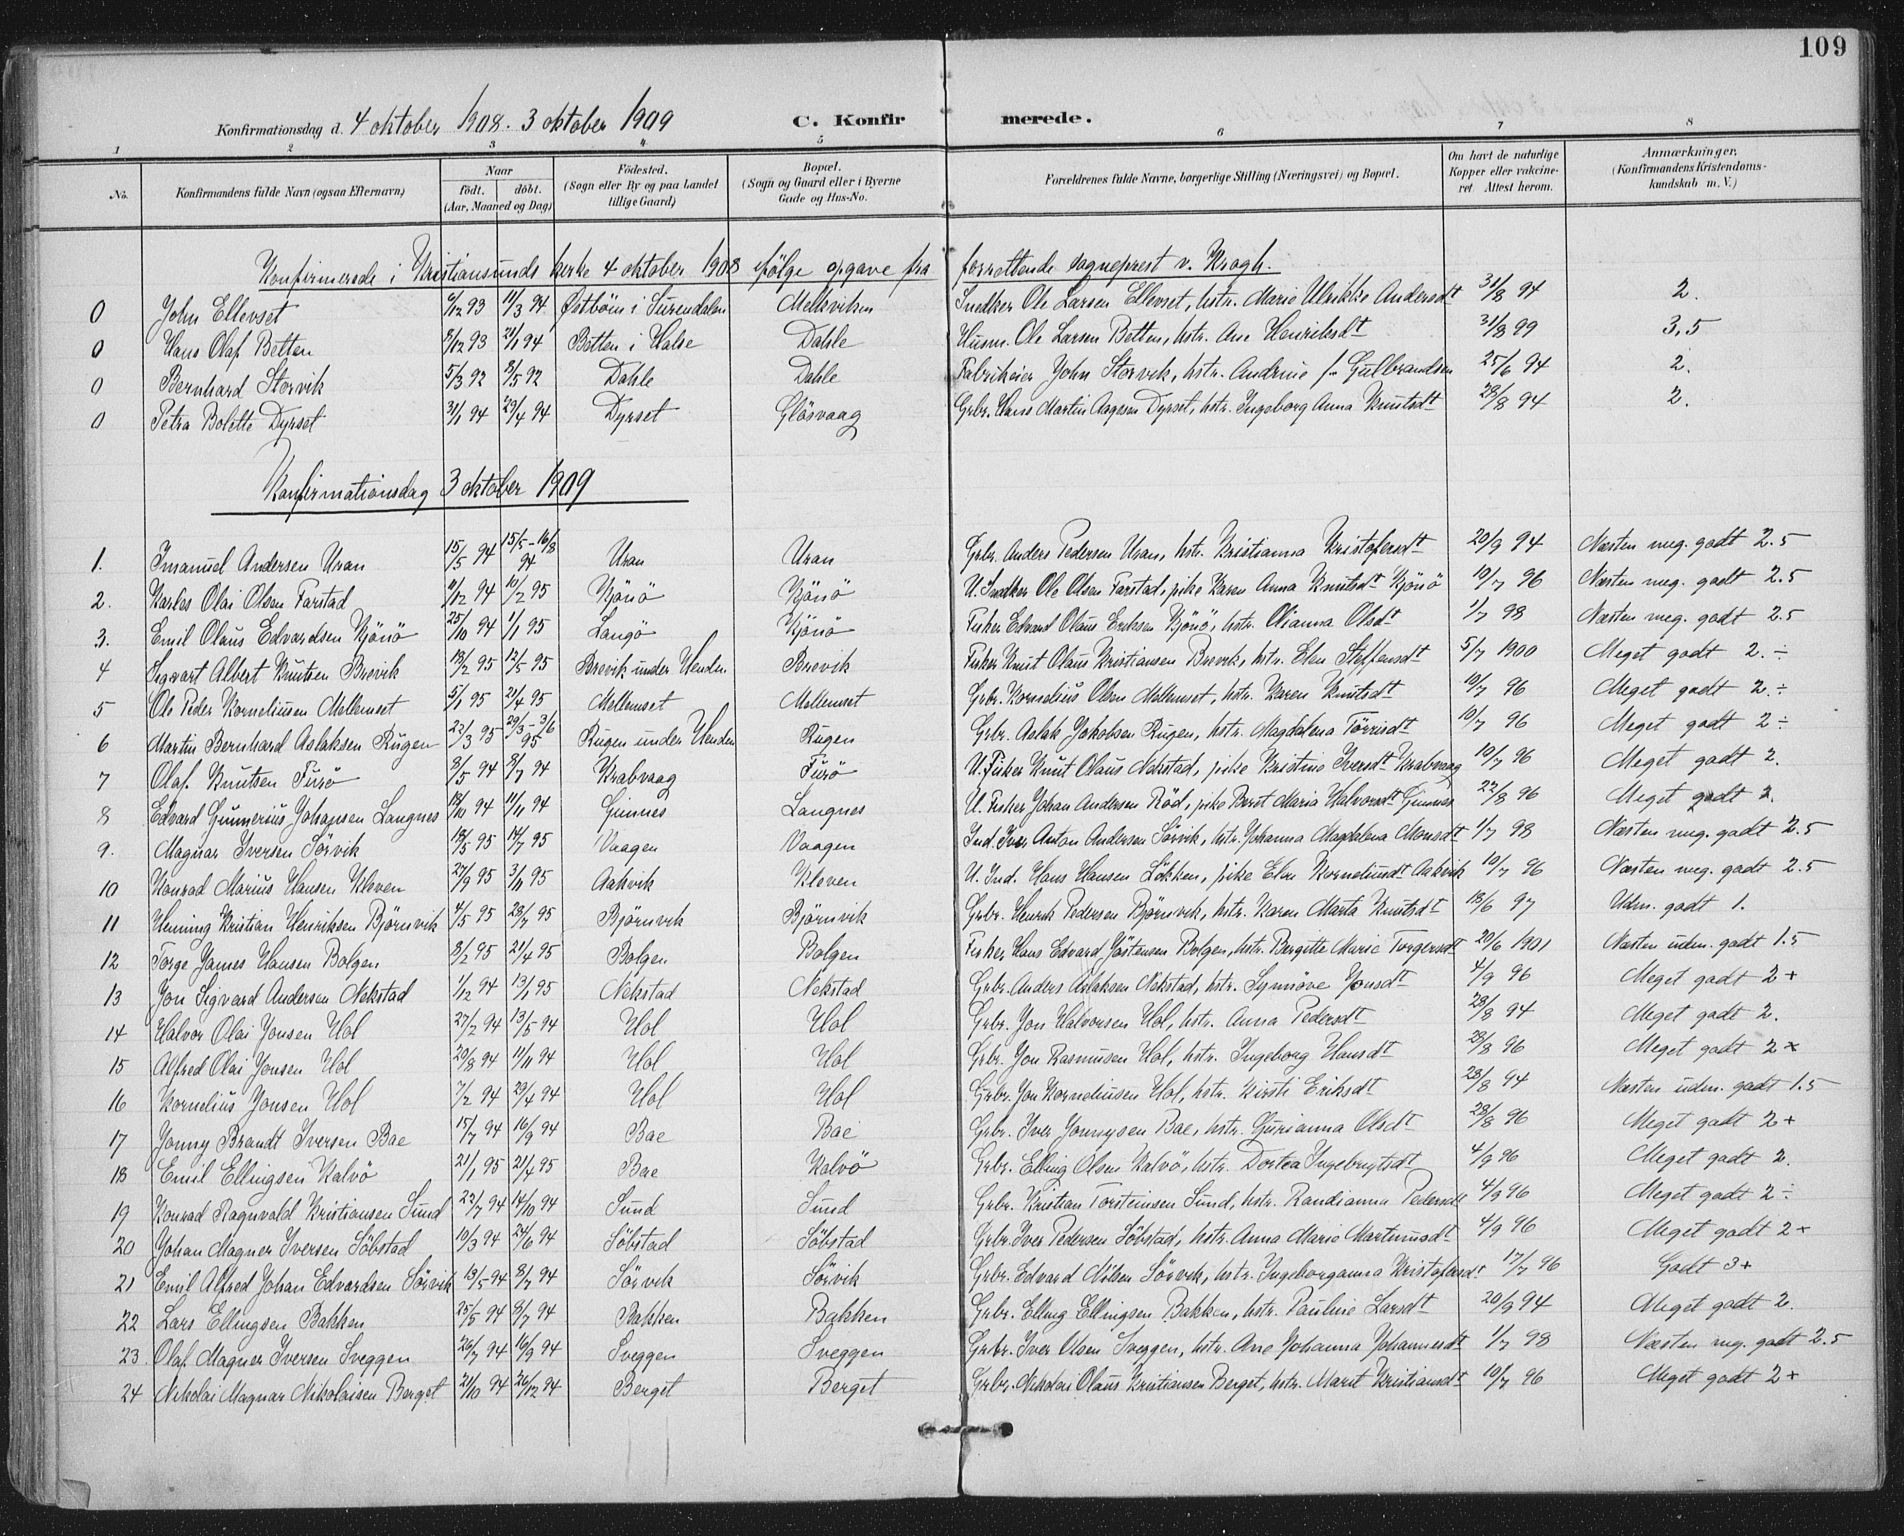 109
Konfirmationsdag d. 4 oktober 1908. 3 oktober 1909 C. Konfirmerede.
1 2 3 4 5 6 7 8
No. Konfirmandens fulde Navn (ogsaa Efternavn) Naar født. døbt. (Aar, Maaned og Dag) Födested. (Sogn eller By og paa Landet tillige Gaard) Bopæl. (Sogn og Gaard eller i Byerne Gade og Hus-No. Forældrenes fulde Navne, borgerlige Stilling (Næringsvei) og Bopæl. Om havt de naturlige Kopper eller vakcineret Attest herom. Anmærkninger. (Konfirmandens Kristendomskundskab m. V.)
Konfirmerede i Kristiansunds kirke 4 oktober 1908 ifølge opgave fra forrettende sogneprest v. Krogh.
0 John Ellevset 6/12 93 11/3 94 Østbön i Surendalen Melkviken Snedker Ole Larsen Ellevset, hstr. Marie Ulrikke Andersdt 31/8 94 2.
0 Hans Olaf Betten 8/12 93 21/1 94 Betten i Halse Dahle Husm. Ole Larsen Betten, hstr. Ane Henriksdt 31/8 99 3,5
0 Bernhard Storvik 5/3 92 8/5 92 Dahle Dahle Fabrikeier John Storvik, hstr. Andrine f. Gulbrandsen 25/6 94 2.
0 Petra Bolette Dyrset 31/1 94 29/4 94 Dyrset Glåsvaag Grbr. Hans Martin Aagesen Dyrset, hstr. Ingeborg Anna Knutsdt 28/8 94 2.
Konfirmationsdag 3 oktober 1909
1. Imanuel Andersen Uran 15/5 94 15/5-16/8 94 Uran Uran Grbr. Anders Pedersen Uran, hstr. Kristianna Kristofersdt 20/9 94 Næsten meg. godt 2.5
2. Karles Olai Olsen Farstad 11/12 94 10/2 95 Kjönö Kjönö U. Snedker Ole Olsen Farstad, pike Karen Anna Knutsdt Kjönö 10/7 96 Næsten meg. godt 2.5
3. Emil Olaus Edvardsen Kjönö 25/10 94 1/1 95 Langö Kjönö Fisker Edvard Olaus Eriksen Kjönö, hstr. Olianna Olsdt 1/7 98 Næsten meg. godt 2.5
4 Sigvart Albert Knutsen Brevik 18/2 95 12/5 95 Brevik under Henden Brevik Fisker Knut Olaus Kristiansen Brevik, hstr. Elen Steffensdt 5/7 1900 Meget godt 2.÷
5 Ole Peder Korneliusen Mellemset 5/1 95 21/4 95 Mellemset Mellemset Grbr. Kornelius Olsen Mellemset, hstr. Karen Knutsdt 10/7 96 Meget godt 2.÷
6 Martin Bernhard Aslaksen Rugen 22/3 95 29/3-3/6 95 Rugen under Henden Rugen Grbr. Aslak Jakobsen Rugen, hstr. Magdalena Törrisdt 10/7 96 Meget godt 2÷
7 Olaf Knutsen Furö 8/5 94 8/7 94 Krabvaag Furö U. Fisker Knut Olaus Nekstad, pike Kristine Iversdt Krabvaag 10/7 96 Meget godt 2.
8 Edvard Gunnerius Johansen Langnes 18/10 94 11/11 94 Ginnes Langnes U. Fisker Johan Andersen Röd, pike Beret Maria Halvorsdt Ginnes 22/8 96 Meget godt 2.
9. Magnar Iversen Sörvik 18/5 95 14/7 95 Vaagen Vaagen Ind. Iver Anton Andersen Sörvik, hstr. Johanna Magdalena Monsdt 1/7 98 Næsten meg. godt 2.5
10 Konrad Marius Hansen Kleven 27/9 95 3/11 95 Aakvik Kleven U. Ind. Hans Hansen Lökken, pike Elen Korneliusdt Aakvik 10/7 96 Næsten meg. godt 2.5
11 Henning Kristian Henriksen Björnvik 4/5 95 28/7 95 Björnvik Björnvik Grbr. Henrik Pedersen Björnvik, hstr. Karen Marta Knutsdt 18/6 97 Udm. godt 1.
12 Torge James Hansen Bolgen 8/2 95 21/4 95 Bolgen Bolgen Fisker Hans Edvard Jöstensen Bolgen, hstr. Bergitte Marie Torgersdt 20/6 1901 Næsten udm. godt 1.5
13 Jon Sigvard Andersen Nekstad 1/12 94 13/1 95 Nekstad Nekstad Grbr. Anders Aslaksen Nekstad, hstr. Synnöve Jonsdt 4/9 96 Meget godt 2+
14 Halvor Olai Jonsen Hol 27/2 94 13/5 94 Hol Hol Grbr. Jon Halvorsen Hol, hstr. Anna Pedersdt 28/8 94 Meget godt 2.
15 Alfred Olai Jonsen Hol 20/8 94 11/11 94 Hol Hol Grbr. Jon Rasmusen Hol, hstr. Ingeborg Hansdt 28/8 96 Meget godt 2+
16 Kornelius Jonsen Hol 7/2 94 29/4 94 Hol Hol Grbr. Jon Korneliusen Hol, hstr. Kirsti Eriksdt 28/8 94 Næsten udm. godt 1.5
17 Jonny Brandt Iversen Bae 15/7 94 16/9 94 Bae Bae Grbr. Iver Jonnysen Bae, hstr. Gurianna Olsdt 28/8 96 Meget godt 2+
18 Emil Ellingsen Kalvö 21/1 95 21/4 95 Bae Kalvö Grbr. Elling Olsen Kalvö, hstr. Dortea Ingebrigtsdt 4/9 96 Meget godt 2.
19 Konrad Ragnvald Kristiansen Sund 22/7 94 14/10 94 Sund Sund Grbr. Kristian Torsteinsen Sund, hstr. Randianna Pedersdt 4/9 96 Meget godt 2÷
20 Johan Magner Iversen Söbstad 10/3 94 24/6 94 Söbstad Söbstad Grbr. Iver Pedersen Söbstad, hstr. Anna Marie Martinusdt 4/9 96 Meget godt 2+
21 Emil Alfred Johan Edvardsen Sörvik 13/5 94 8/7 94 Sörvik Sörvik Grbr. Edvard Nilsen Sörvik, hstr. Ingeborganna Kristofersdt 17/7 96 Godt 3+
22 Lars Ellingsen Bakken 25/5 94 8/7 94 Bakken Bakken Grbr. Elling Ellingsen Bakken, hstr. Pauline Larsdt 20/9 94 Meget godt 2.
23. Olaf Magner Iversen Sveggen 26/7 94 16/9 94 Sveggen Sveggen Grbr. Iver Olsen Sveggen, hstr. Ane Johanna Johannesdt 1/7 98 Næsten meg. godt 2.5
24 Nikolai Magnar Nikolaisen Berget 21/10 94 26/12 94 Berget Berget Grbr. Nikolai Olaus Kristiansen Berget, hstr. Marit Kristiansdt 10/7 96 Meget godt 2+